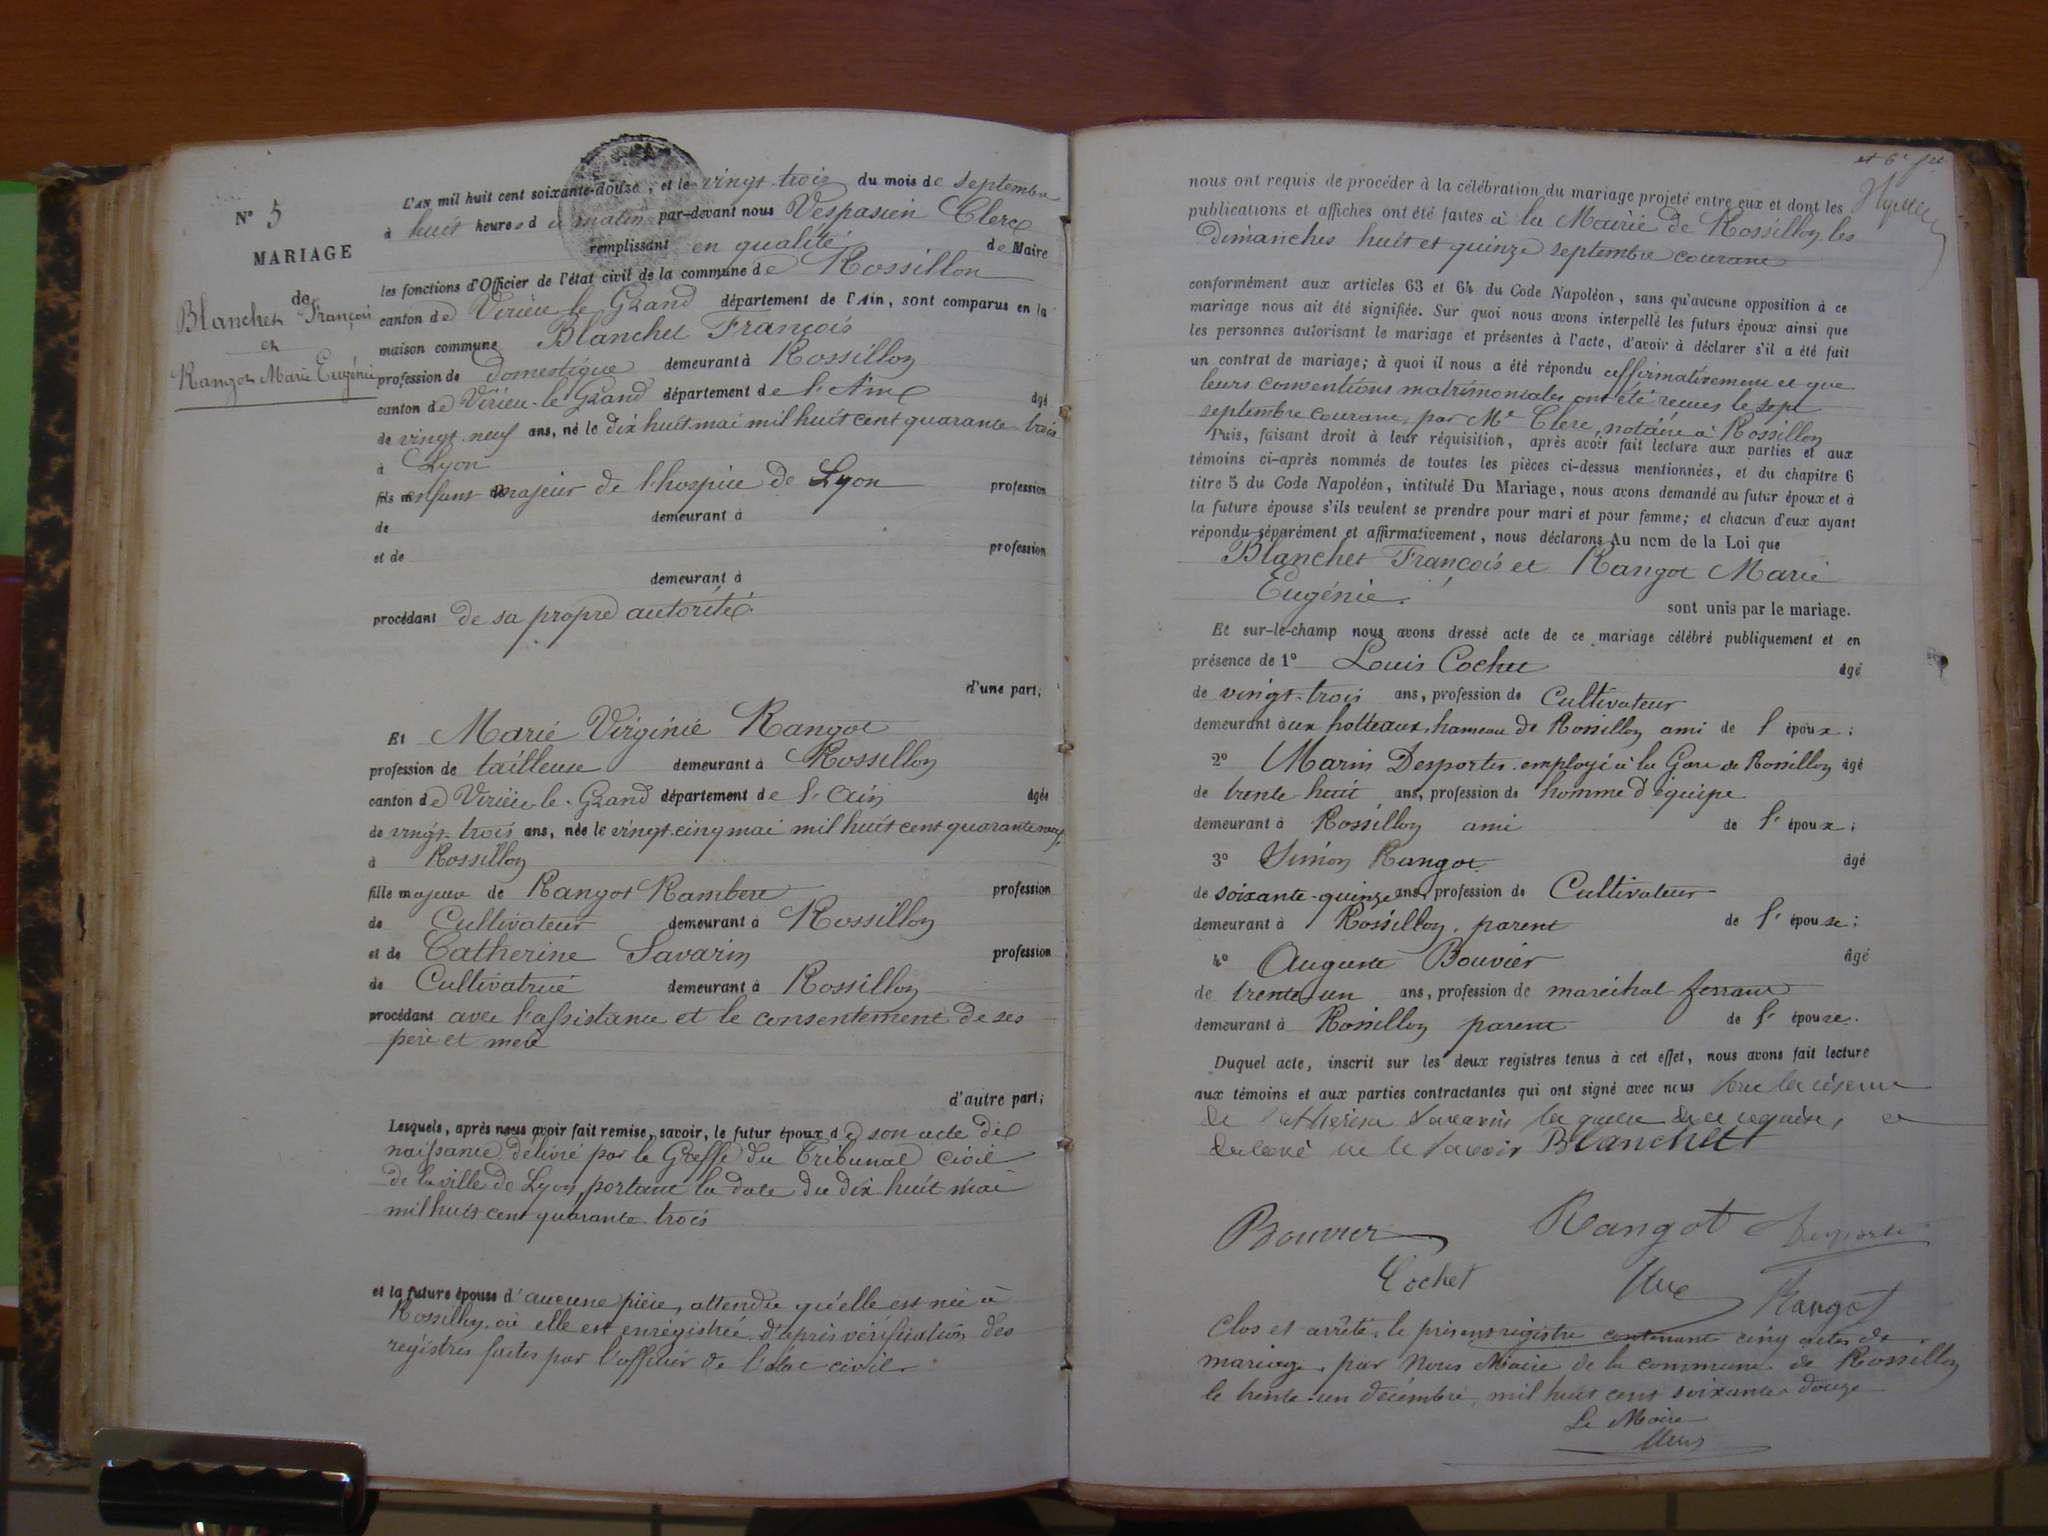 N° 5
MARIAGE
de
Blanchet François
et
Rangot Marie Eugénie
L'AN mil huit cent soixante-douze, et le vingt-trois du mois de septembre
à huit heures du matin par-devant nous Vespasien Clerc
remplissant en qualité de Maire
les fonctions d'Officier de l'état civil de la commune de Rossillon
canton de Virieu le Grand département de l'Ain, sont comparus en la
maison commune Blanchet François
profession de domestique demeurant à Rossillon
canton de Virieu-le-Grand département de l'Ain âgé
de vingt-neuf ans, né le dix huit mai mil huit cent quarante-trois
à Lyon
fils enfant majeur de l'hospice de Lyon profession
de demeurant à
et de profession
demeurant à
procédant de sa propre autorité.
d'une part;
Et Marie Virginie Rangot
profession de tailleuse demeurant à Rossillon
canton de Virieu-le-Grand département de l'Ain âgée
de vingt-trois ans, née le vingt-cinq mai mil huit cent quarante neuf,
à Rossillon
fille majeure de Rangot Rambert profession
de Cultivateur demeurant à Rossillon
et de Catherine Savarin profession
de Cultivatrice demeurant à Rossillon
procédant avec l'assistance et le consentement de ses
père et mère
d'autre part;
Lesquels, après nous avoir fait remise, savoir, le futur époux de son acte de
naissance délivré par le Greffe du Tribunal civil
de la ville de Lyon, portant la date du dix huit mai
mil huit cent quarante-trois
et la future épouse d'aucune pièce, attendu qu'elle est née à
Rossillon où elle est enregistrée d'après vérification des
registres faites par l'officier de l'état civil.
et 6e
nous ont requis de procéder à la célébration du mariage projeté entre eux et dont les
publications et affiches ont été faites à la Mairie de Rossillon les
dimanches huit et quinze septembre courant
conformément aux articles 63 et 64 du Code Napoléon, sans qu'aucune opposition à ce
mariage nous ait été signifiée. Sur quoi nous avons interpellé les futurs époux ainsi que
les personnes autorisant le mariage et présentes à l'acte, d'avoir à déclarer s'il a été fait
un contrat de mariage; à quoi il nous a été répondu affirmativement et que
leurs conventions matrimoniales ont été reçues le sept
septembre courant, par Me Clerc, notaire à Rossillon
Puis, faisant droit à leur réquisition, après avoir fait lecture aux parties et aux
témoins ci-après nommés de toutes les pièces ci-dessus mentionnées, et du chapitre 6
titre 5 du Code Napoléon, intitulé Du Mariage, nous avons demandé au futur époux et à
la future épouse s'ils veulent se prendre pour mari et pour femme; et chacun d'eux ayant
répondu séparément et affirmativement, nous déclarons Au nom de la Loi que
Blanchet François et Rangot Marie
Eugénie.
sont unis par le mariage.
Et sur-le-champ nous avons dressé acte de ce mariage célébré publiquement et en
présence de 1° Louis Cochet âgé
de vingt-trois ans, profession de Cultivateur
demeurant aux hotteaux, hameau de Rossillon ami de l'époux;
2° Marin Desportes employé à la Gare de Rossillon âgé
de trente huit ans, profession de homme d'équipe
demeurant à Rossillon ami de l'époux;
3° Simon Rangot âgé
de soixante-quinze ans, profession de Cultivateur
demeurant à Rossillon, parent de l'épouse;
4° Auguste Bouvier âgé
de trente-un ans, profession de maréchal ferrant
demeurant à Rossillon parent de l'épouse.
Duquel acte, inscrit sur les deux registres tenus à cet effet, nous avons fait lecture
aux témoins et aux parties contractantes qui ont signé avec nous sous la réserve
de Catherine Savarin laquelle de ce requise, a
déclaré ne le savoir Blanchet
Bouvier Rangot Desportes
Cochet Rangot
Clos et arrêté, le présent registre contenant cinq actes de
mariage, par Nous Maire de la commune de Rossillon
le trente-un décembre, mil huit cent soixante-douze
Le Maire